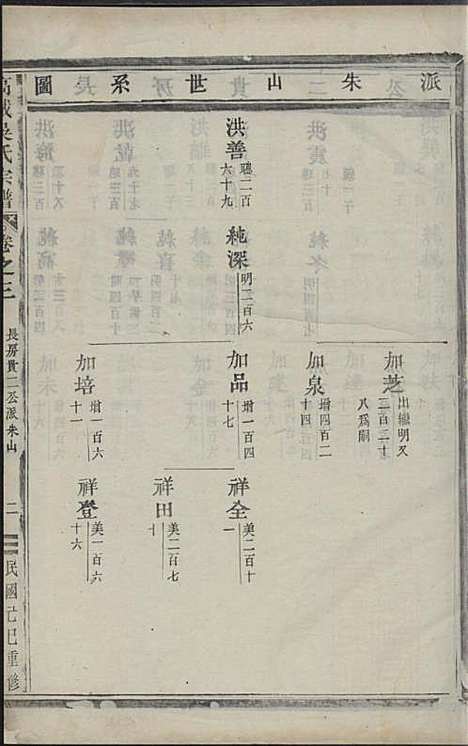 派朱山世系圖
洪善
聰二百
六十九
純深
明二百六
加芝
出繼明又
二百二十
八爲嗣
加泉
增四百二
十四
加品
增一百四
十七
加培
增一百六
十一
祥全
美二百十
一
祥田
美二百七
十
祥登
美一百六
十六
吳氏宗譜
卷之三
長房貫二公派朱山
二
民國己巳重修